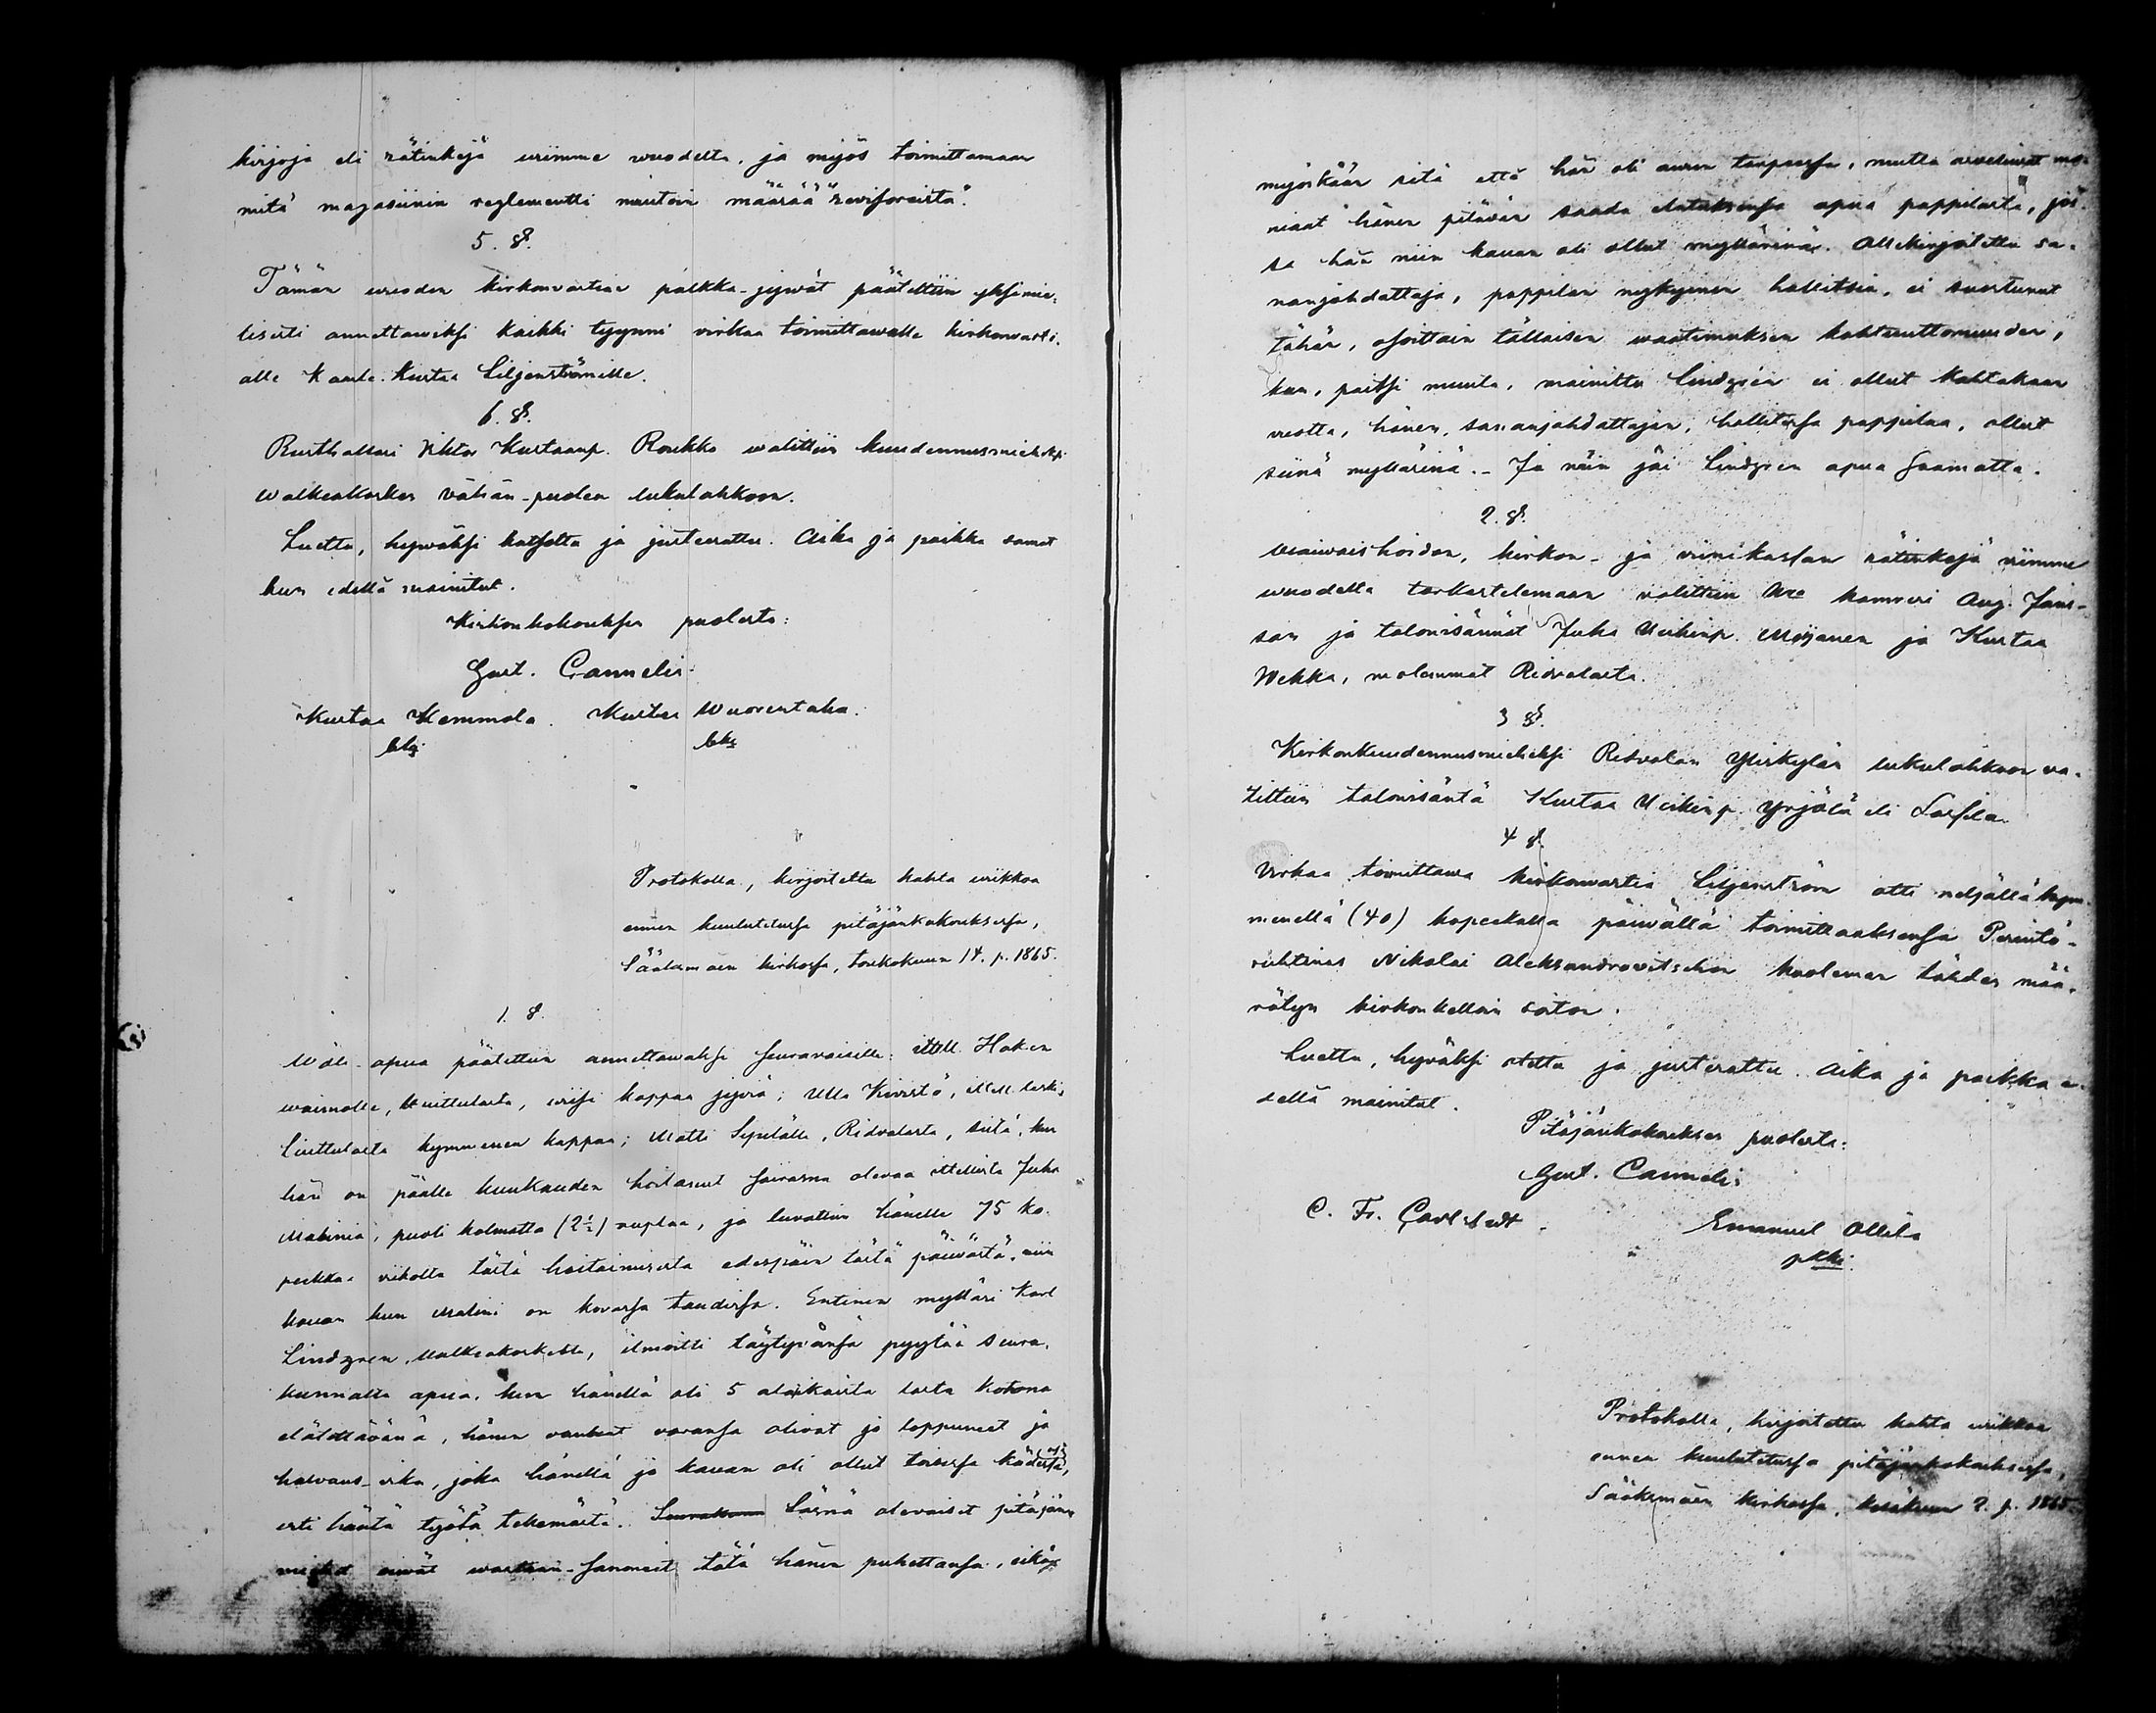 kirjoja eli rätinkejä viimme vuodelta, ja myös toimittamaan
mitä magasiinin reglementti muutoin määrää "revisoreista".
5. §.
Tämän vuoden kirkonvartian palkka-jyvät päätettiin yksimie-
lisesti annettawiksi kaikki tyynni virkaa toimittawalle kirkonvarti-
alle Kaarle Kustaa Liljenströmille.
6. §.
Rusthollari Viktor Kustaanp. Roukko walittiin kuudennusmieheksi
Walkeakosken vähän-puolen lukulahkoon.
Luettu, hywäksi katsottu ja justeerattu. Aika ja paikka samat
kun edellä mainitut.
Kirkonkokouksen puolesta:
Gust. Cannelin.
Kustaa Kemmola. Kustaa Wuorentaka.
Protokolla, kirjoitettu kahta wiikkoa
ennen kuulutetussa pitäjänkokouksessa,
Sääksmäen kirkossa, toukokuun 14. p. 1865.
1. §.
Wäli-apua päätettiin annettawaksi seuravaisille: Hakin
waimolle, Huittulasta, wiisi kappaa jyviä; Ulla Kivistö,
Liuttulasta kymmenen kappaa; Matti Sipilälle, Ridvalasta, siitä, kun
hän on päälle kuukauden hoitanut sairasna olevaa Juha
Malinia, puoli kolmatta (2½) ruplaa, ja luvattiin hänelle 75 ko-
peekkaa viikolta tästä hoitamisesta edespäin tästä päivästä, niin
kauan kun Malini on kovassa taudissa. Entinen mylläri Karl
Lindgren, Walkeakoskelta, ilmoitti täytyvänsä pyytää seura-
kunnalta apua, kun hänellä oli 5 alaikäistä lasta kotona
elätettävänä, hänen vanhat varansa olivat jo loppuneet ja
halvaus-vika, joka hänellä jo kauan oli ollut toisessa kädessä,
esti häntä työtä tekemästä. Läsnä olevaiset pitäjän-
miehet eiwät wastaan-sanoneet tätä hänen puhettansa, eikä
myöskään sitä että hän oli avun tarpeessa, mutta arvelivat mo-
niaat hänen pitävän saada elatuksensa apua pappilasta, jos-
sa hän niin kauan oli ollut myllärinä. Allekirjoitettu sa-
nanjohdattaja, pappilan nykyinen hallitsia, ei suostunut
tähän, osoittain tällaisen waatimuksen kohtuuttomuuden,
kun, paitsi muuta, mainittu Lindgrén ei ollut kahtakaan
vuotta, hänen, sananjohdattajan, hallitessa pappilaa, ollut
siinä myllärinä. – Ja näin jäi Lindgren apua saamatta.
2. §.
Waiwaishoidon, kirkon- ja viinikassan rätinkejä viimme
wuodelta tarkastelemaan valittiin Wra kamreri Aug. Jans-
son ja talonisännät Juha Heikinp. Mojanen ja Kustaa
Wekka, molemmat Ridvalasta.
3 §.
Kirkonkuudennusmieheksi Ridvalan Yliskylän lukulahkoon va-
littiin talonisäntä Kustaa Heikinp. Yrjölä eli Lassila.
4 §.
Virkaa toimittawa kirkonvartia Liljenström otti neljälläkym-
menellä (40) kopeekalla päivältä toimittaaksensa Perintö-
ruhtinas Nikolai Aleksandrowitschin kuoleman tähden mää-
rätyn kirkonkelloin soiton.
Luettu, hyväksi otettu ja justerattu. Aika ja paikka e-
dellä mainitut.
Pitäjänkokouksen puolesta:
Gust. Cannelin
C. Fr. Carlstedt. Emanuel Ollila
Protokolla, kirjoitettu kahta wiikkoa
ennen kuulutetussa pitäjänkokouksessa,
Sääksmäen kirkossa, kesäkuun 2. p. 1865.